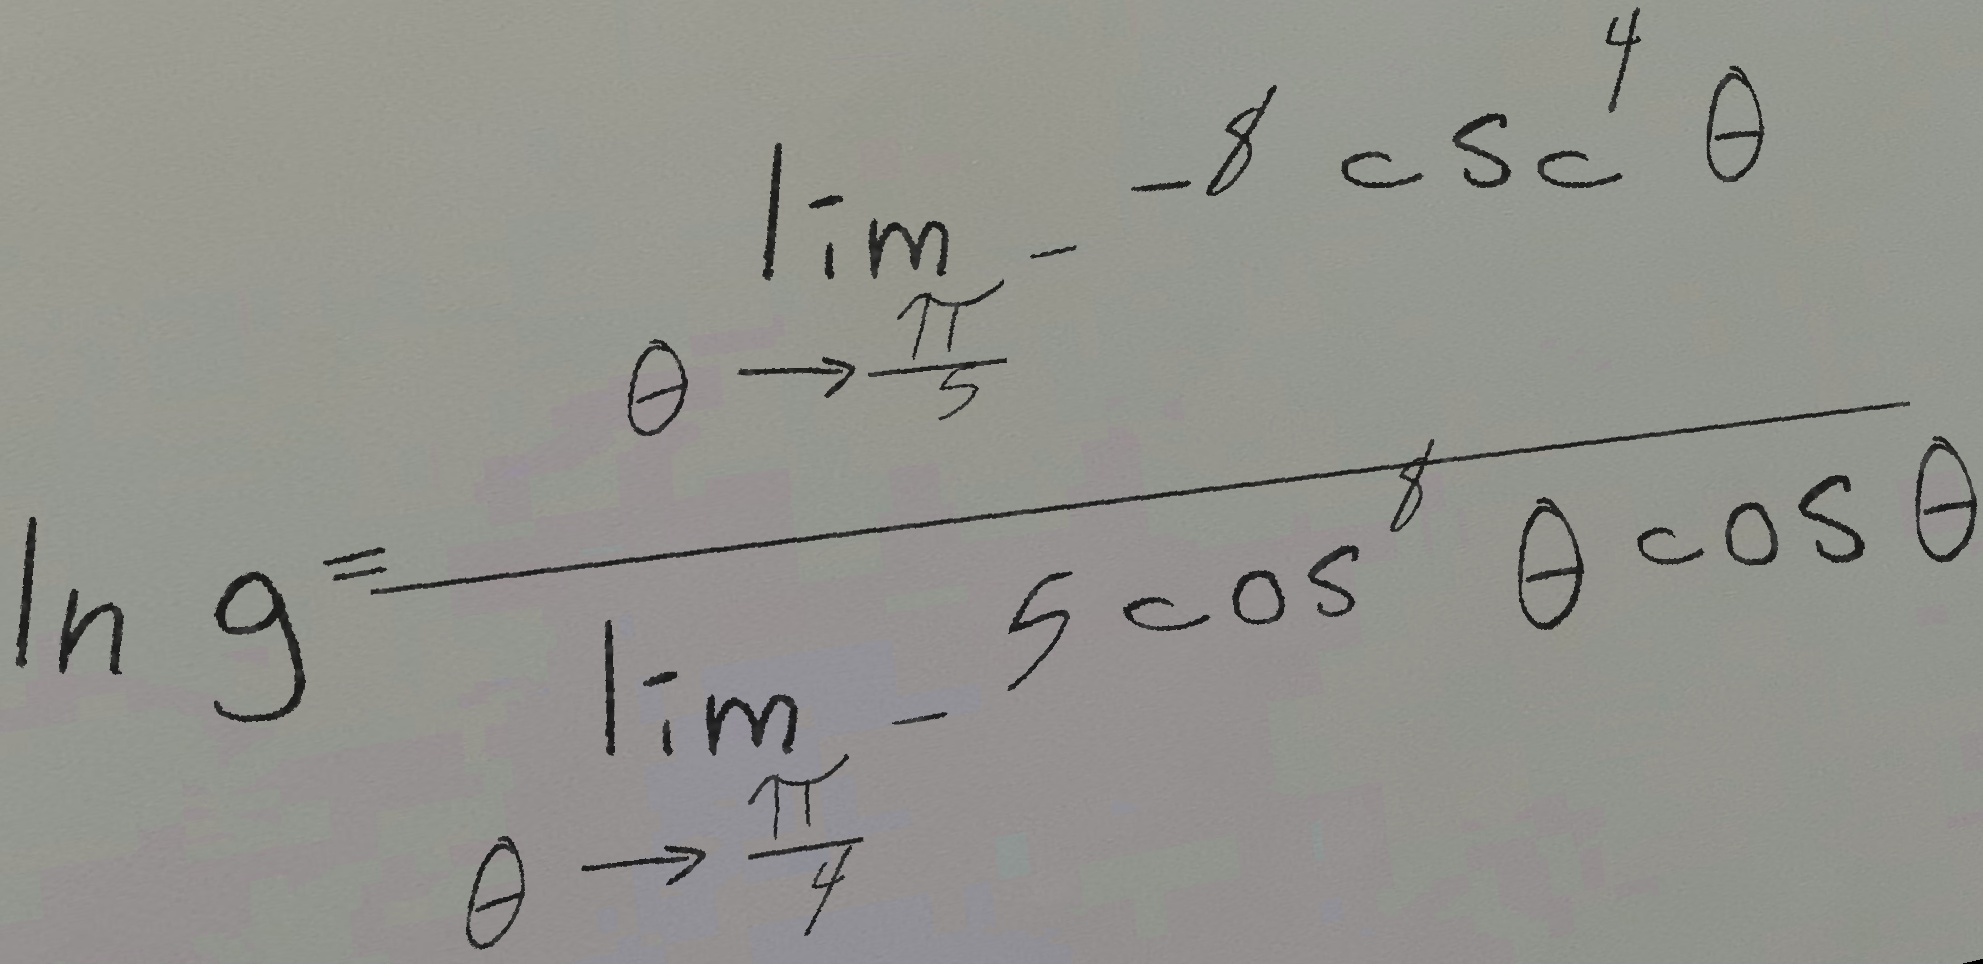 \ln g = \frac{\lim_{\theta \to \frac{\pi}{5}^-} -8 \csc^4 \theta}{\lim_{\theta \to \frac{\pi}{4}^-} 5 \cos^8 \theta \cos \theta}